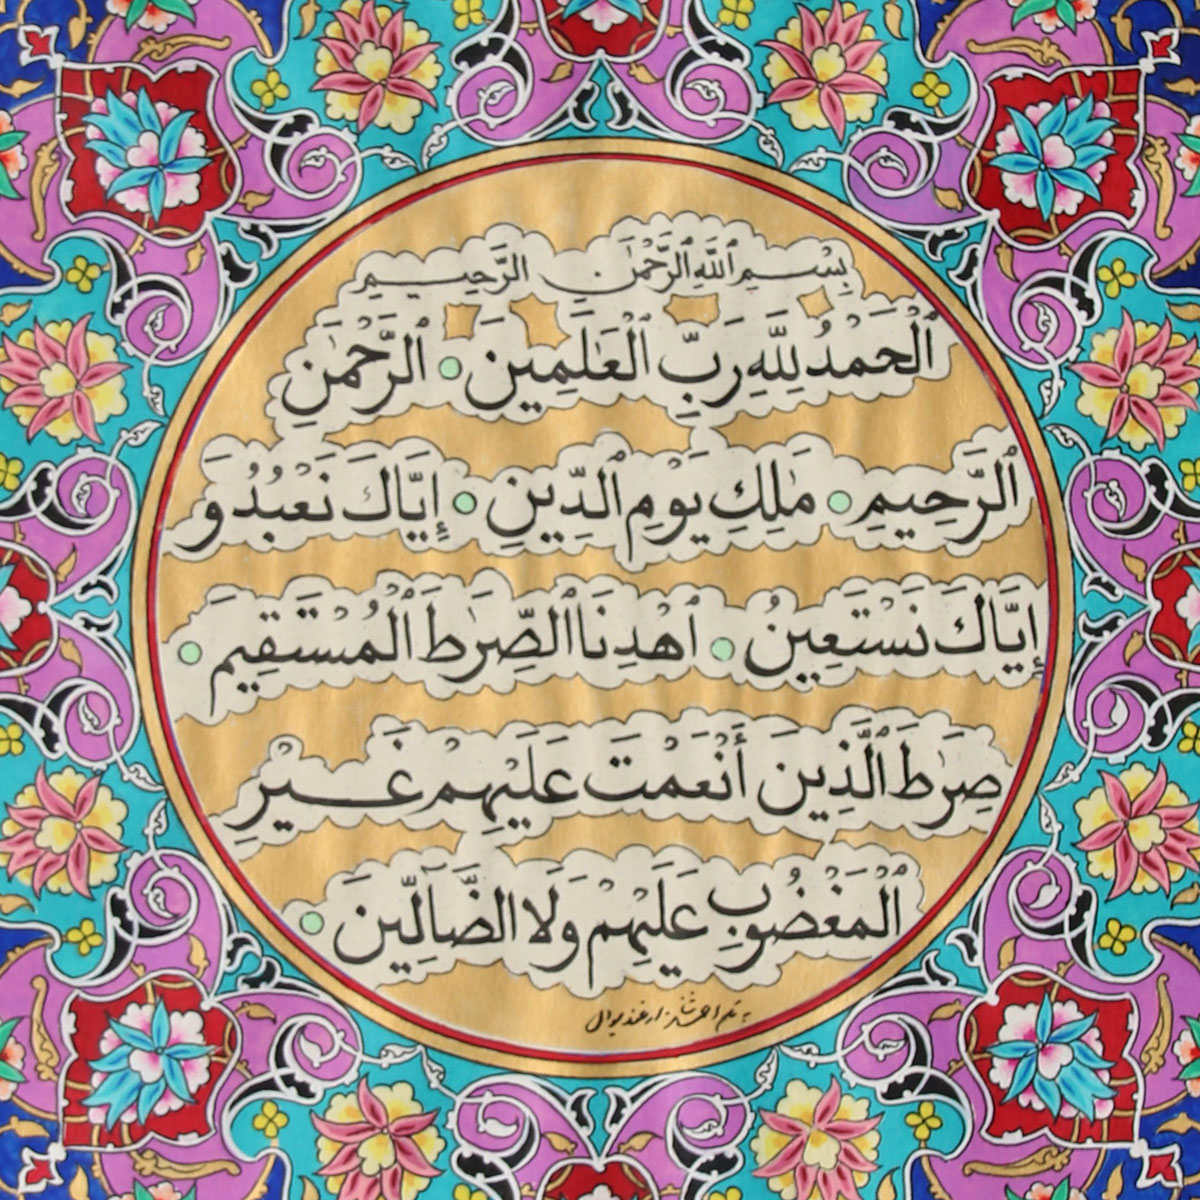 بِسْمِ ٱللَّهِ ٱلرَّحْمَٰنِ ٱلرَّحِيمِ
ٱلْحَمْدُ لِلَّهِ رَبِّ ٱلْعَٰلَمِينَ ۝ ٱلرَّحْمَٰنِ
ٱلرَّحِيمِ ۝ مَٰلِكِ يَوْمِ ٱلدِّينِ ۝ إِيَّاكَ نَعْبُدُ وَ
إِيَّاكَ نَسْتَعِينُ ۝ ٱهْدِنَا ٱلصِّرَٰطَ ٱلْمُسْتَقِيمَ ۝
صِرَٰطَ ٱلَّذِينَ أَنْعَمْتَ عَلَيْهِمْ غَيْرِ
ٱلْمَغْضُوبِ عَلَيْهِمْ وَلَا ٱلضَّآلِّينَ ۝